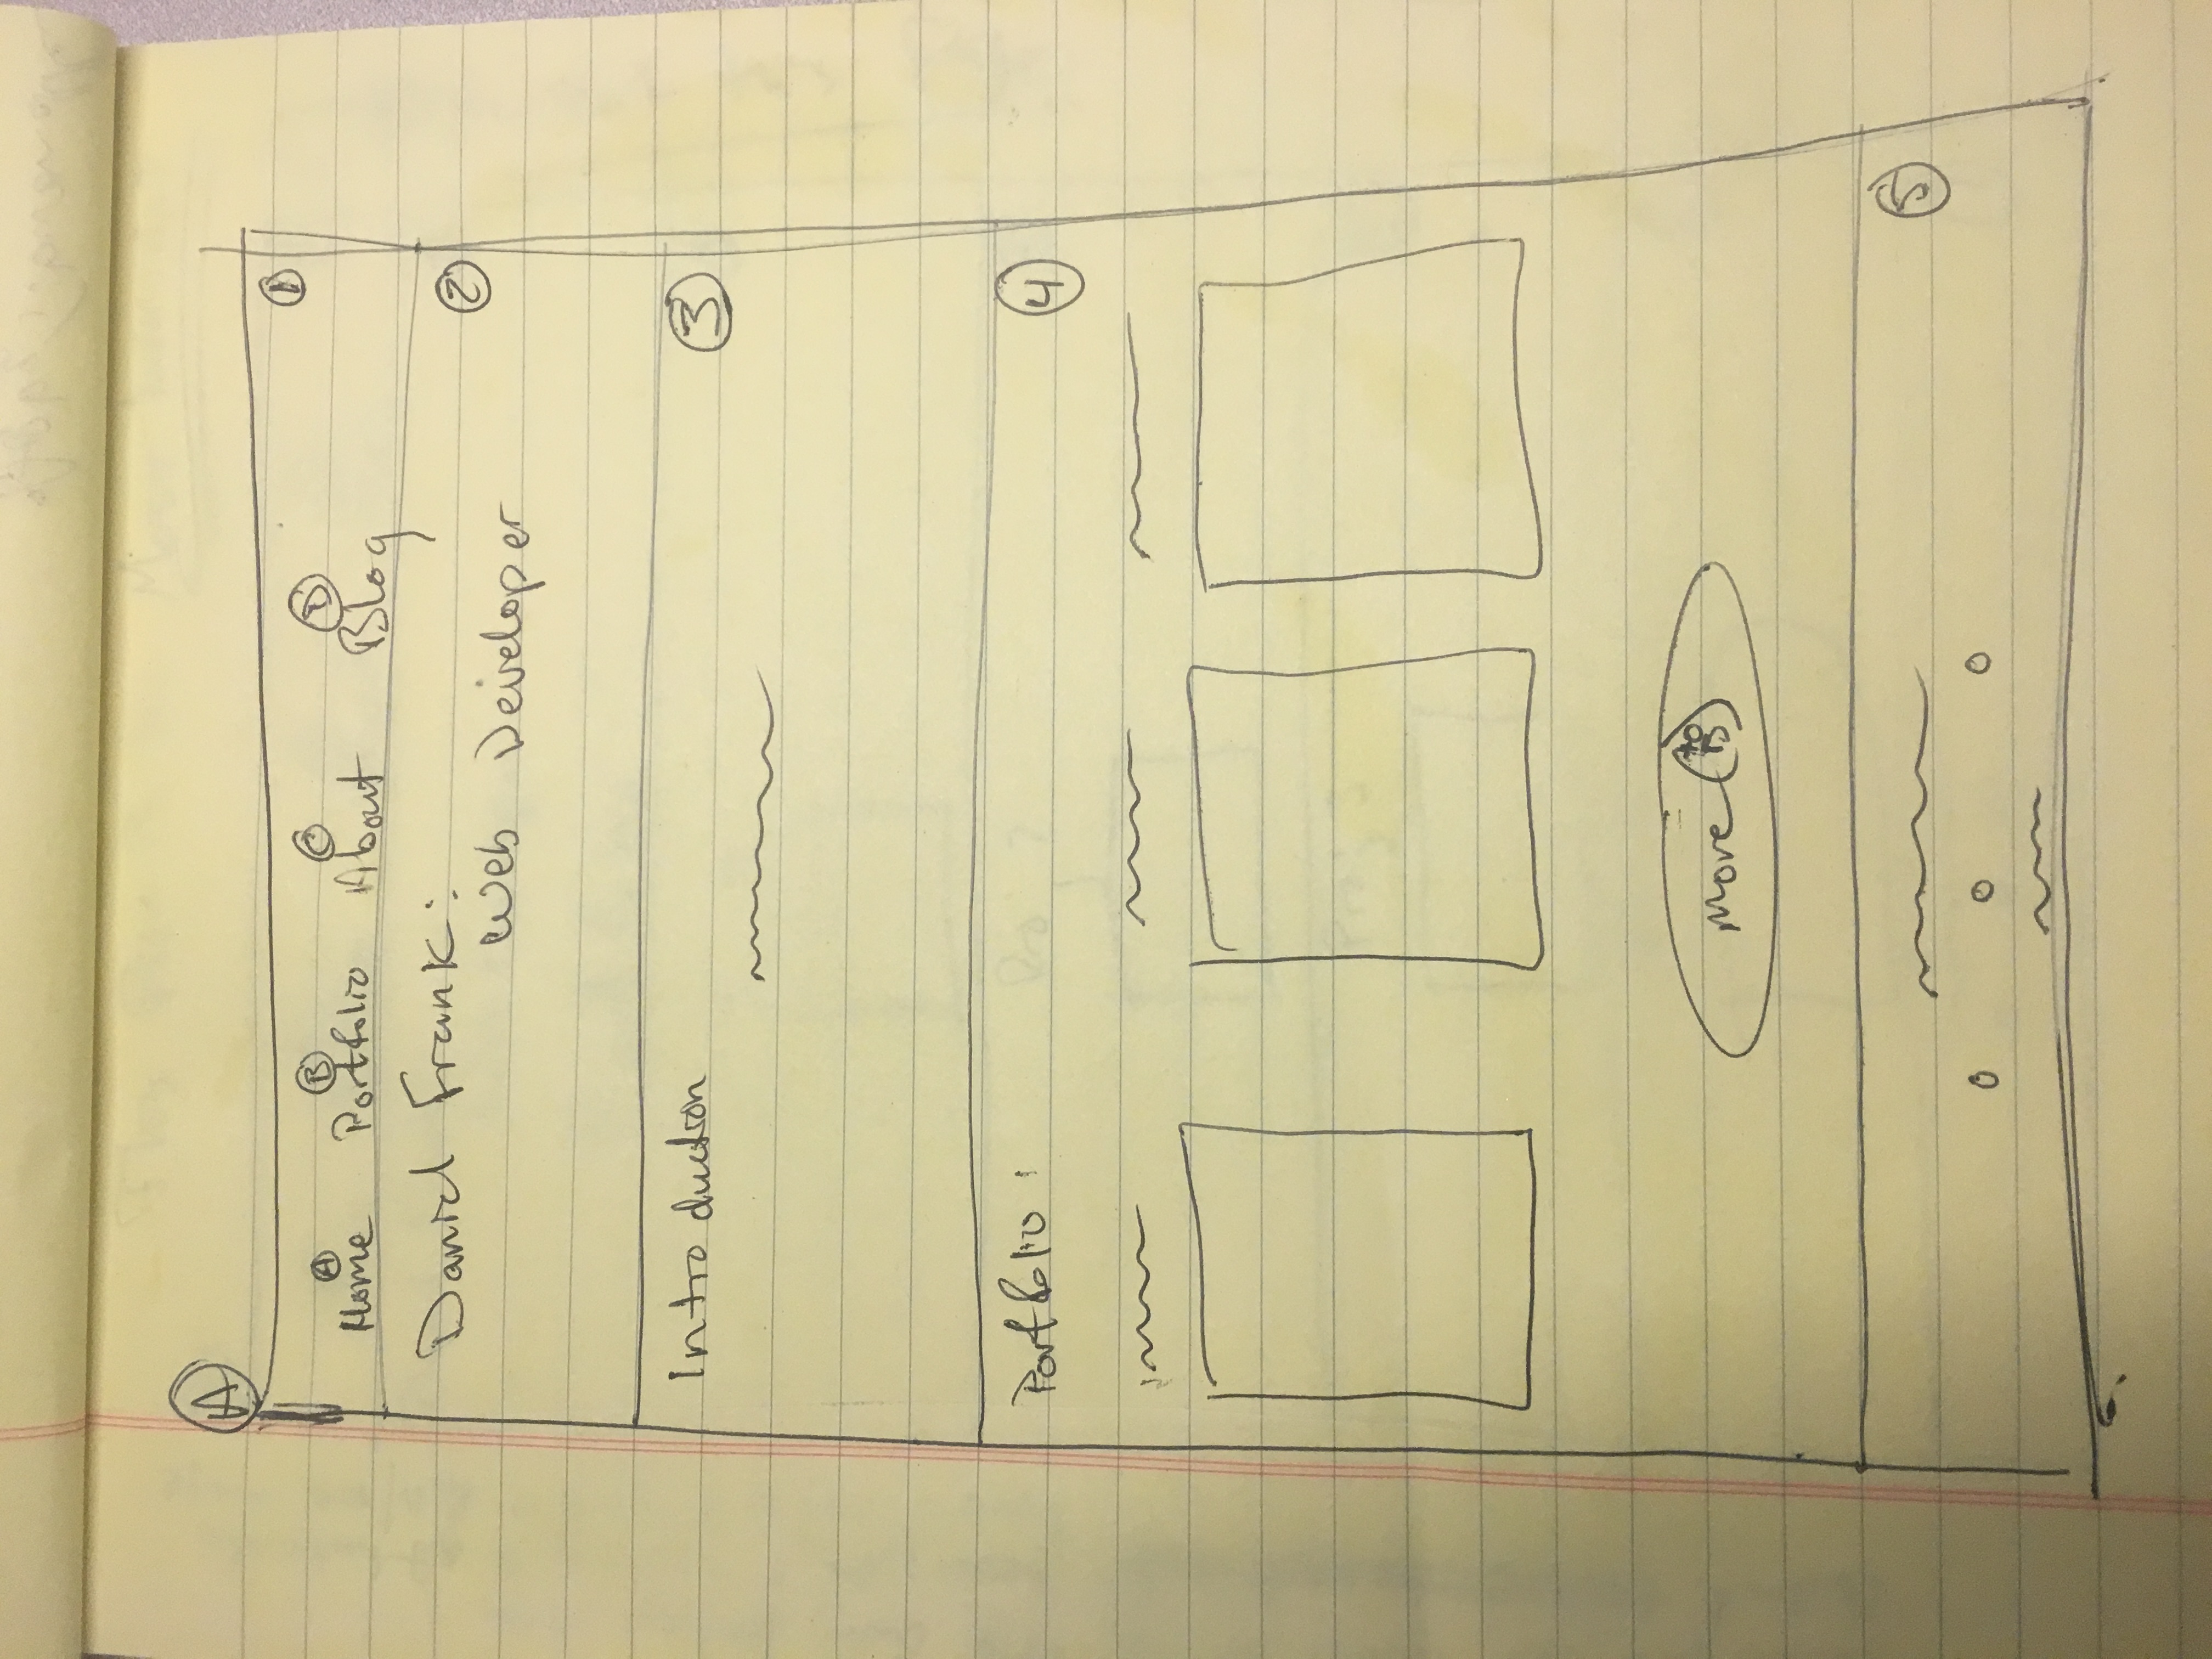 A
1
A B C D
Home Portfolio About Blog
Daniel Frank:
2
Web Developer
Introduction
3
Portfolio:
4
More to B
5